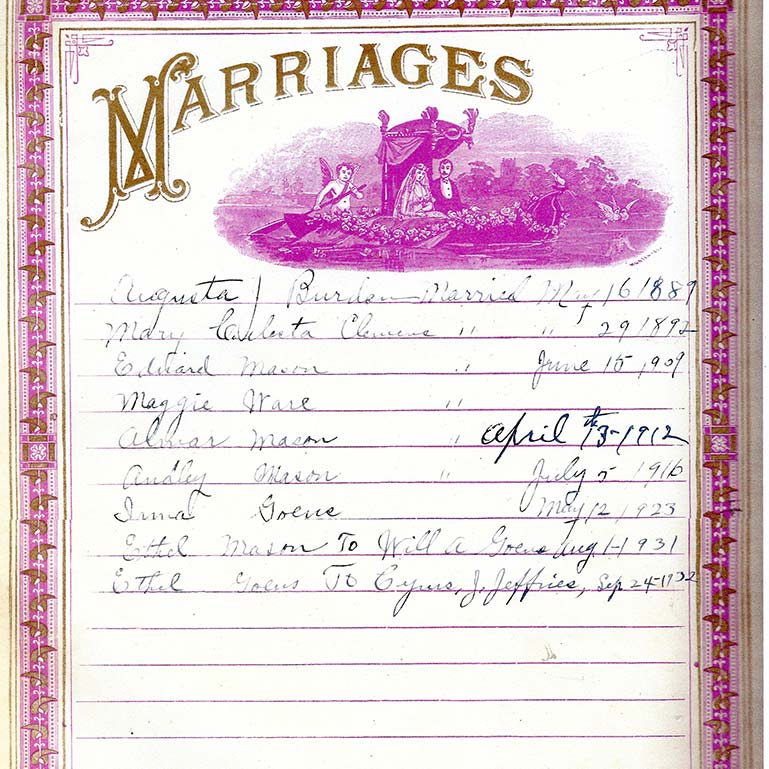 MARRIAGES
Augusta J Burdon Married May 16 1889
Mary Celesta Clemens " " 29 1892
Edward Mason " June 15 1909
Maggie Ware "
Almar Mason " April 13th-1912
Audley Mason " July 5 1916
Irma Goens May 12 1923
Ethel Mason To Will A Goens Aug 1-1931
Ethel Goens To Cyrus, J. Jeffries, Sep 24-1932